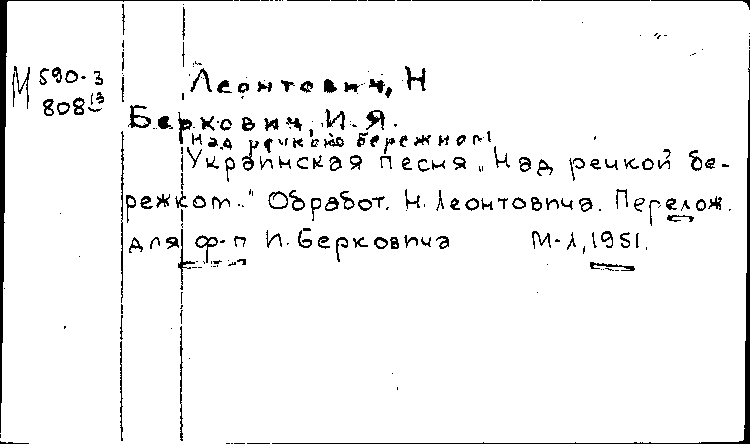 М 590-3
808 13
Леонтович, Н
Беркович, И. Я.
Над речкою бережком
Украинская песня „Над речкой бе-
режком.." Обработ. Н. Леонтовича. Перелож.
для ф-п И. Берковича М-Л, 1951.